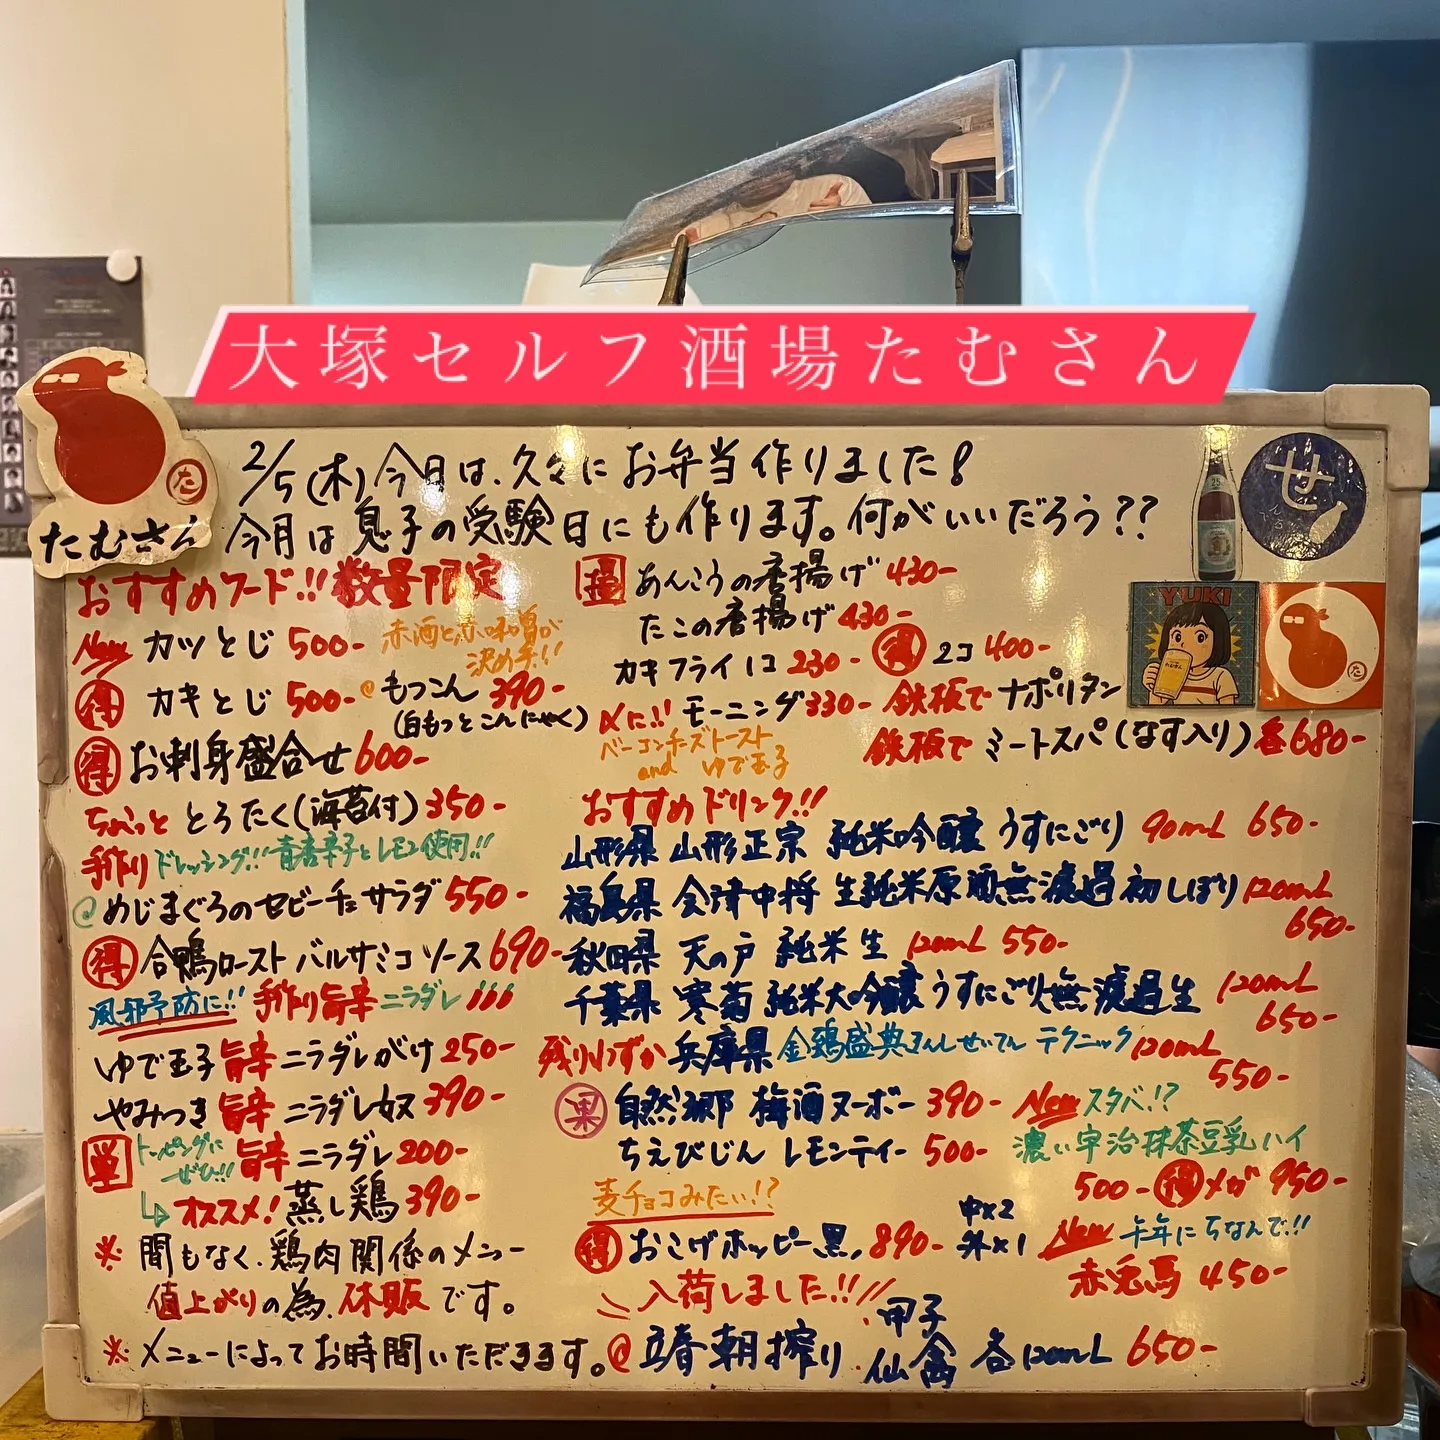 大塚セルフ酒場たむさん
2/5(木)今日は、久々にお弁当作りました!
今月は息子の受験日にも作ります。何がいいだろう??
たむさん
た
せ
YUKI
おすすめフード!!数量限定
New カツとじ 500-
赤酒と赤味噌が
決め手!!
得 カキとじ 500-
@もつこん 390-
(白もつとこんにゃく)
得 お刺身盛合せ 600-
ちょこっと とろたく(海苔付) 350-
手作りドレッシング!!青唐辛子とレモン使用!!
@めじまぐろのセビーチェサラダ 550-
得 合鴨ロースト バルサミコソース 690-
風邪予防に!! 手作り旨辛ニラダレ!!!
ゆで玉子 旨辛ニラダレがけ 250-
やみつき 旨辛ニラダレ奴 390-
単 トッピングに
ぜひ!! 旨辛ニラダレ 200-
オススメ! 蒸し鶏 390-
※間もなく、鶏肉関係のメニュー
値上がりの為、休販です。
※メニューによってお時間いただきます。
揚 あんこうの唐揚げ 430-
たこの唐揚げ 430-
カキフライ1コ 230- 得 2コ 400-
〆に!! モーニング 330-
ベーコンチーズトースト
and ゆで玉子
鉄板で ナポリタン
鉄板で ミートスパ(なす入り) 各680-
おすすめドリンク!!
山形県 山形正宗 純米吟醸 うすにごり 90mL 650-
福島県 会津中将 生純米原酒無濾過初しぼり 120mL
650-
秋田県 天の戸 純米 生 120mL 550-
千葉県 寒菊 純米大吟醸うすにごり無濾過生 120mL
650-
残りわずか 兵庫県 金鶏盛典きんしせいてん テクニック 120mL
550-
果 自然郷 梅酒ヌーボー 390-
ちえびじん レモンティー 500-
New スタバ!?
濃い宇治抹茶豆乳ハイ
500- 得 メガ 950-
麦チョコみたい!?
得 おこげホッピー黒 890-
中×2
外×1
New 午年にちなんで!!
赤兎馬 450-
入荷しました!!
@立春朝搾り
甲子
仙禽
各120mL 650-